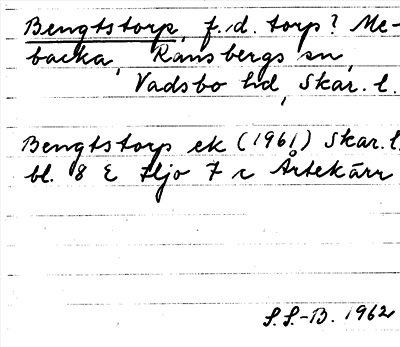 Bengtstorp, f.d. torp? Me-
backa, Ransbergs sn,
Vadsbo hd, Skar. l.
Bengtstorp ek (1961) Skar. l.
bl. 8 E Hjo 7 c Årtekärr
S.S.-B. 1962